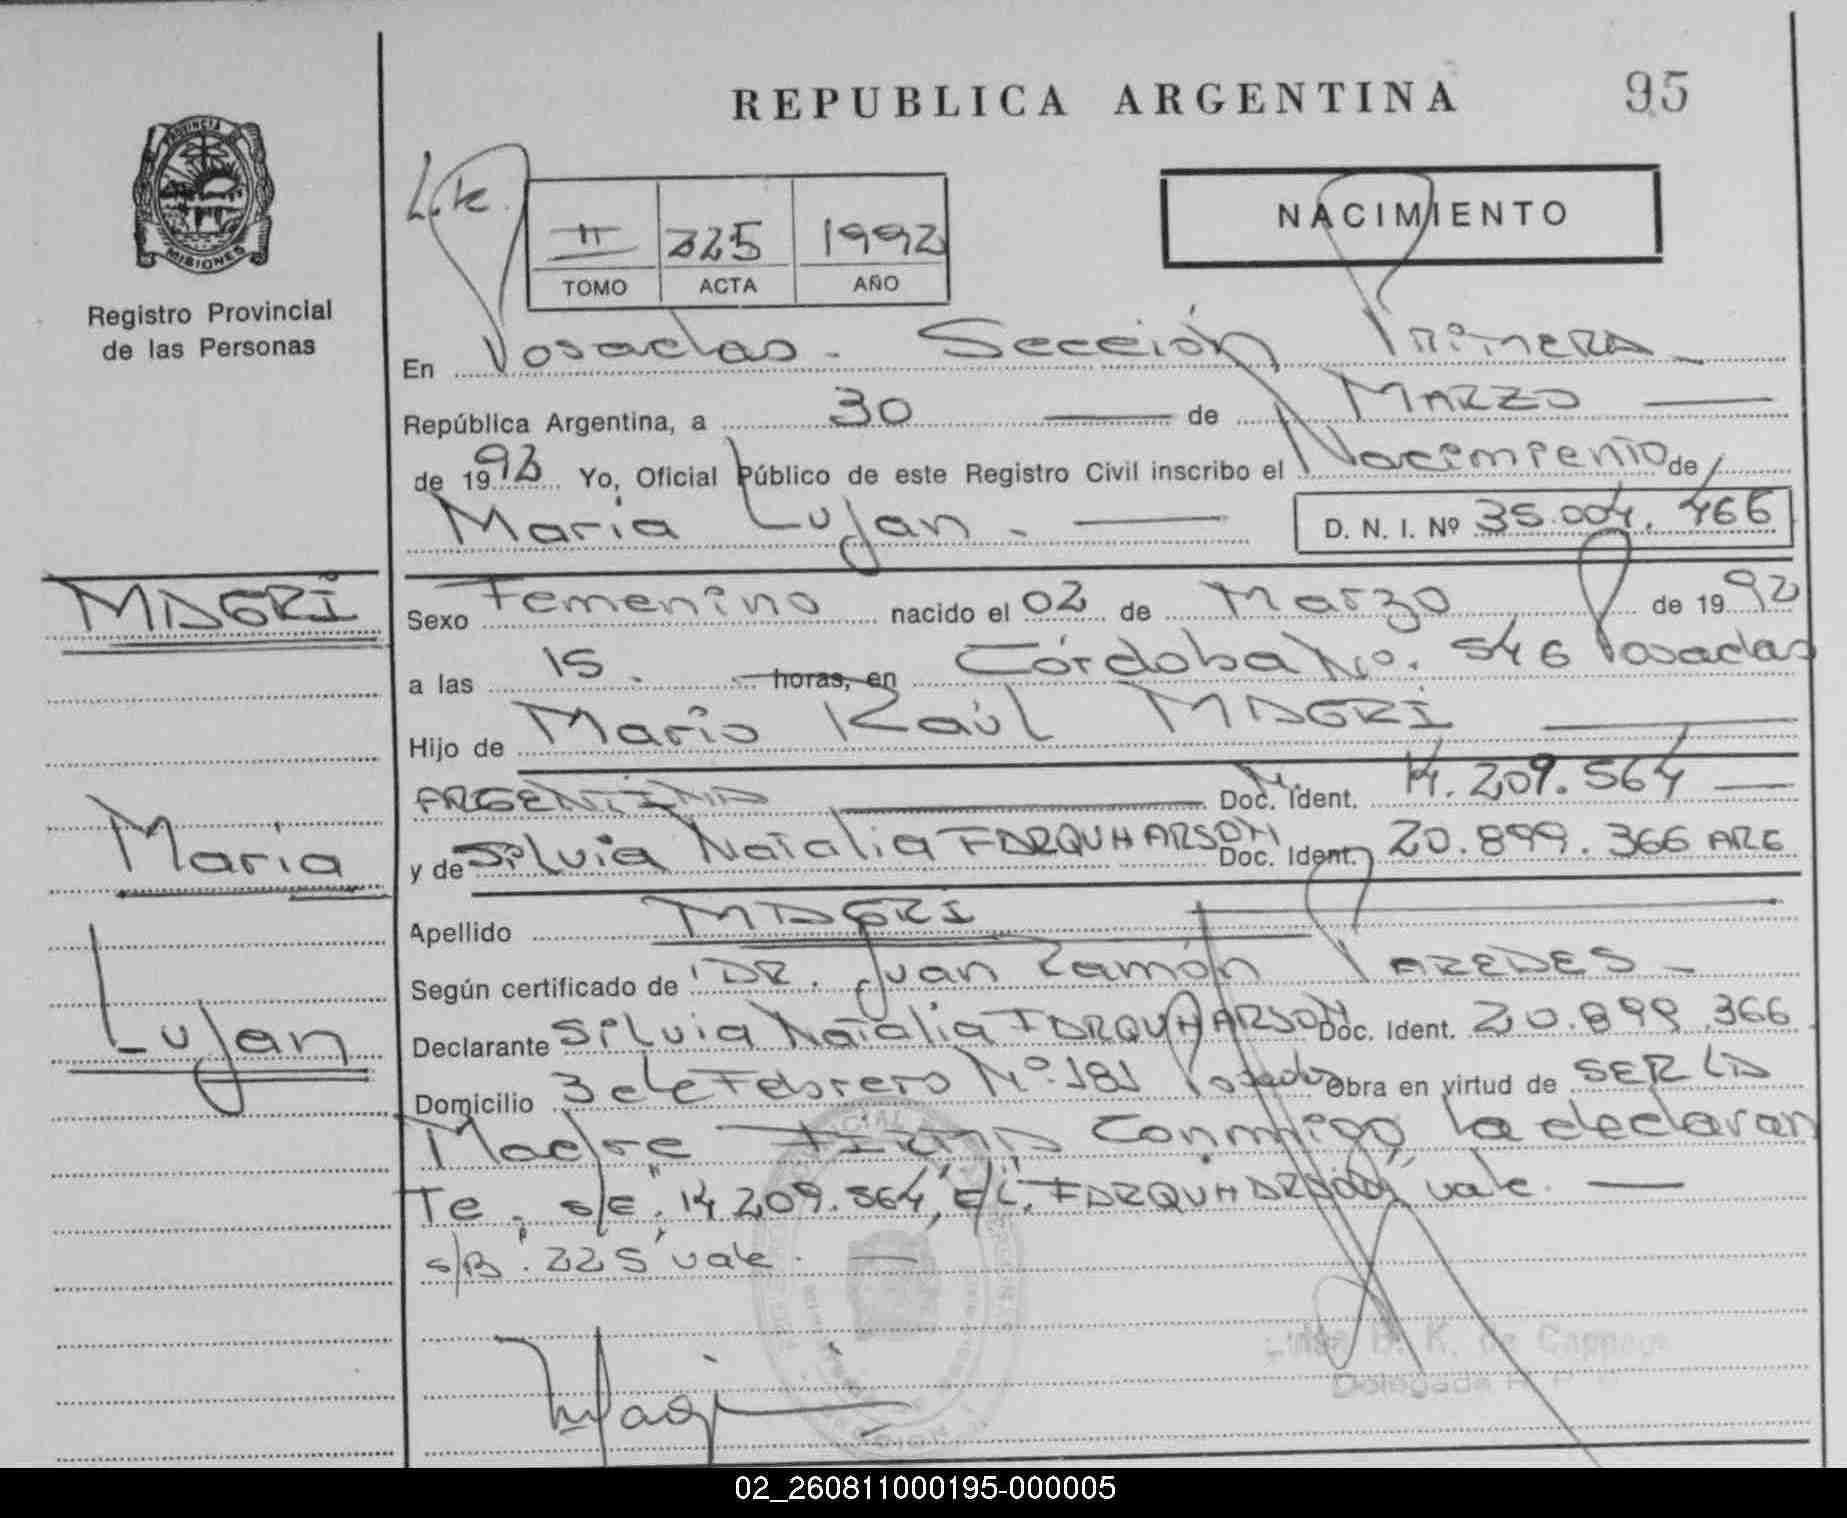 REPUBLICA ARGENTINA 95
PROVINCIA DE
MISIONES
Registro Provincial
de las Personas
NACIMIENTO
II 225 1992
TOMO ACTA AÑO
En Posadas - Sección Primera -
República Argentina, a 30 de MARZO
de 1992 Yo, Oficial Público de este Registro Civil inscribo el Nacimiento de
Maria Lujan - D. N. I. Nº 35.004.466
MAGRI
Sexo Femenino nacido el 02 de Marzo de 1992
a las 15. horas, en Córdoba Nro. 546 Posadas
Hijo de Mario Raúl MAGRI
ARGENTINA Doc. Ident. 14.209.564
Maria
y de Silvia Natalia FARQUHARSON Doc. Ident. 20.899.366 ARG
Apellido MAGRI
Según certificado de DR. Juan Ramón PAREDES -
Lujan
Declarante Silvia Natalia FARQUHARSON Doc. Ident. 20.899.366
Domicilio 3 de Febrero Nº 181 Posadas Obra en virtud de SER LA
Madre FIRMA Conmigo la declaran
Te. s/e. "14.209.564", e/l. "FARQUHARSON" vale.
s/B. "225" vale.
Delegada
02_260811000195-000005